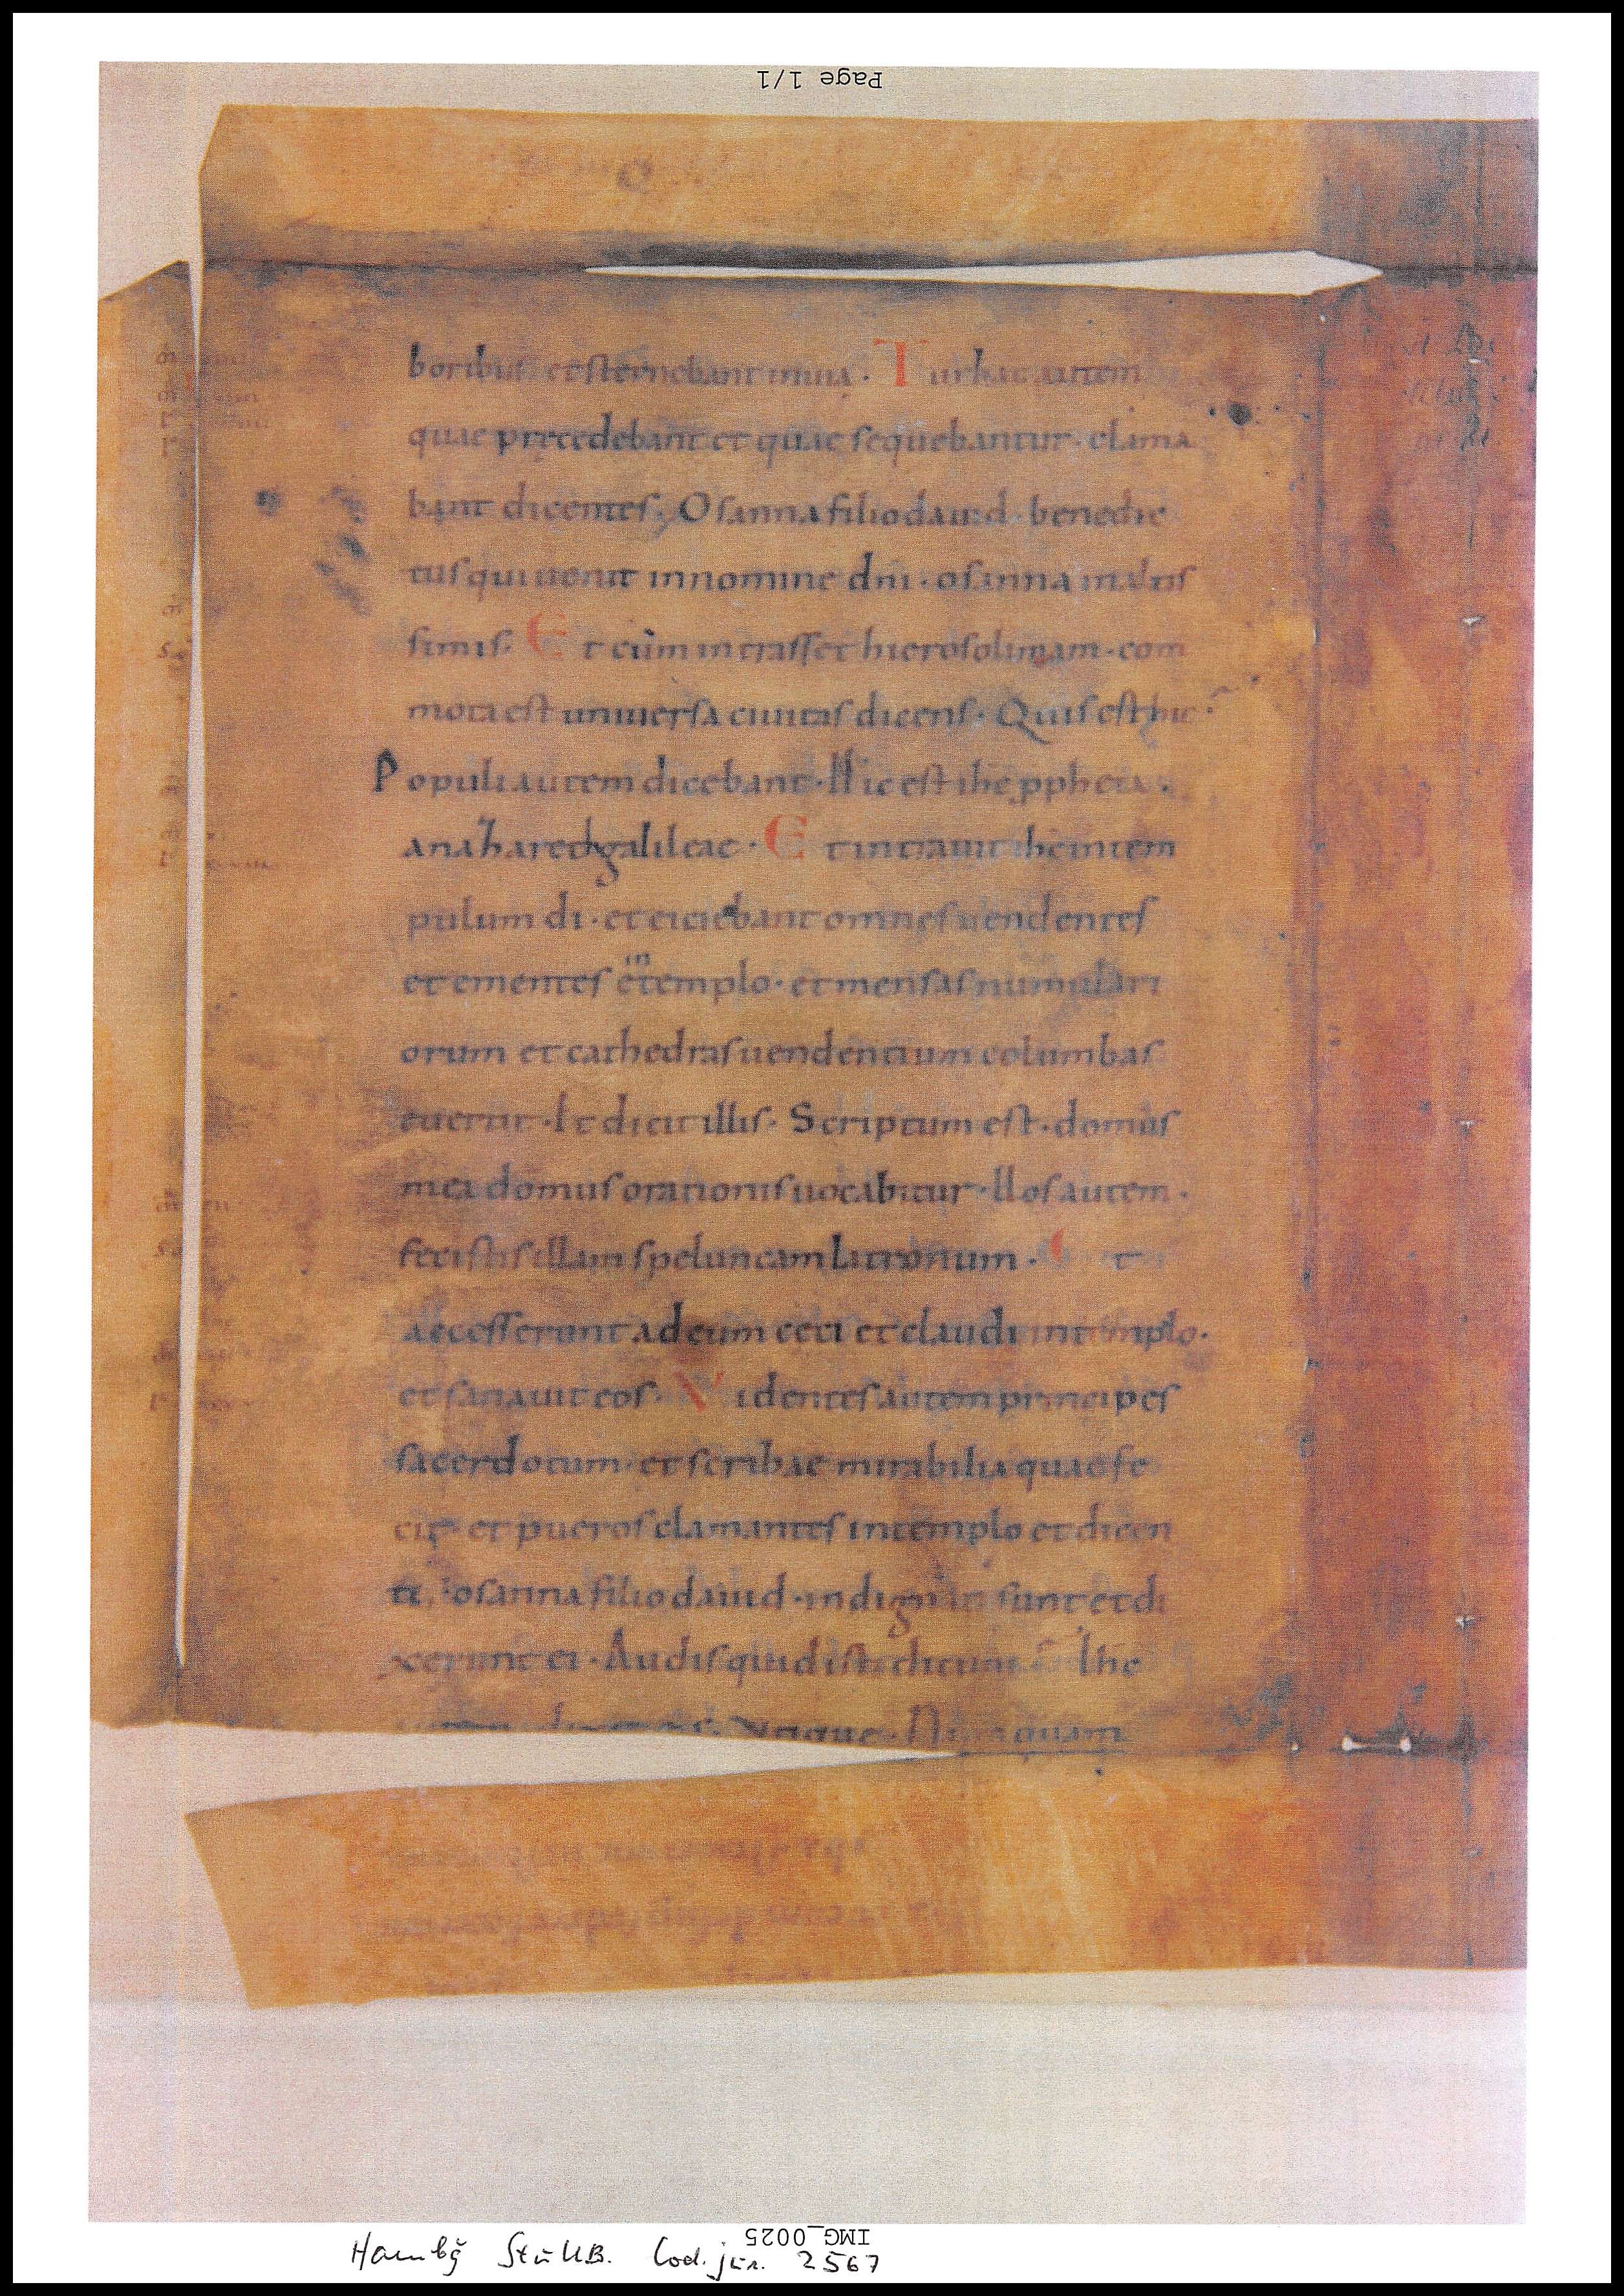 Page 1/1
boribus et sternebant inuia · Turbae autem
quae precedebant et quae sequebantur · clama
bant dicentes · Osanna filio dauid · benedic
tus qui uenit in nomine dni · osanna in altis
simis · Et cum intrasset hierosolimam · com
mota est uniuersa ciuitas dicens · Quis est hic ·
Populi autem dicebant · Hic est ihc ppheta ·
anazareth galileae · Et intrauit ihc intem
pulum di · et eiciebant omnes uendentes
et ementes in templo · et mensas nummulari
orum et cathedras uendentium columbas
euertit · Et dicit illis · Scriptum est · domus
mea domus orationis uocabitur · Uos autem ·
fecistis illam speluncam latronum · Et
accesserunt ad eum ceci et claudi in templo ·
et sanauit eos · Videntes autem principes
sacerdotum · et scribae mirabilia quae fe
cit · et pueros clamantes in templo et dicen
te, · osanna filio dauid · indignati sunt et di
xerunt ei · Audis quid isti dicunt · Ihc
Utique · Numquam
IMG_0025
Hambg StuUB. Cod. jur. 2567